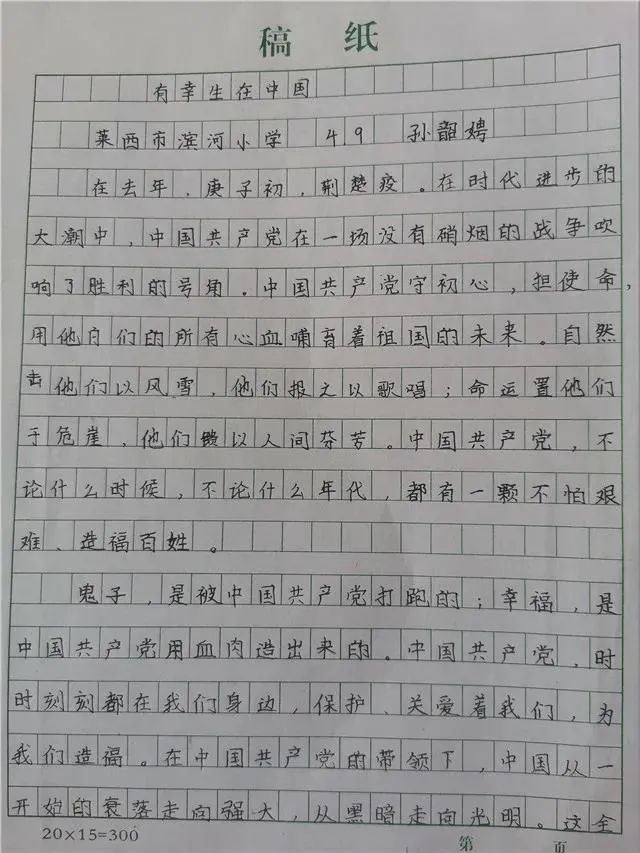 稿 纸
有幸生在中国
莱西市滨河小学 49 孙韶娉
在去年，庚子初，荆楚疫。在时代进步的
大潮中，中国共产党在一场没有硝烟的战争吹
响了胜利的号角。中国共产党守初心，担使命，
用他们的所有心血哺育着祖国的未来。自然
击他们以风雪，他们报之以歌唱；命运置他们
于危崖，他们馈以人间芬芳。中国共产党，不
论什么时候，不论什么年代，都有一颗不怕艰
难、造福百姓。
鬼子，是被中国共产党打跑的；幸福，是
中国共产党用血肉造出来的。中国共产党，时
时刻刻都在我们身边，保护、关爱着我们，为
我们造福。在中国共产党的带领下，中国从一
开始的衰落走向强大，从黑暗走向光明。这全
20×15=300
第 页